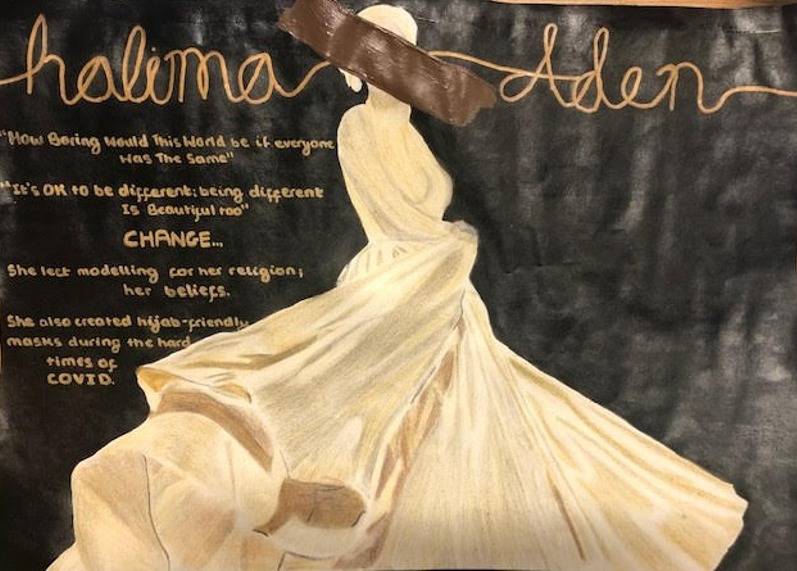 halima Aden
"How Boring Would This World be if everyone
Was The Same"
"It's OK to be different; being different
Is Beautiful too"
CHANGE...
She left modelling for her religion;
her beliefs.
She also created hijab-friendly
masks during the hard
times of
COVID.